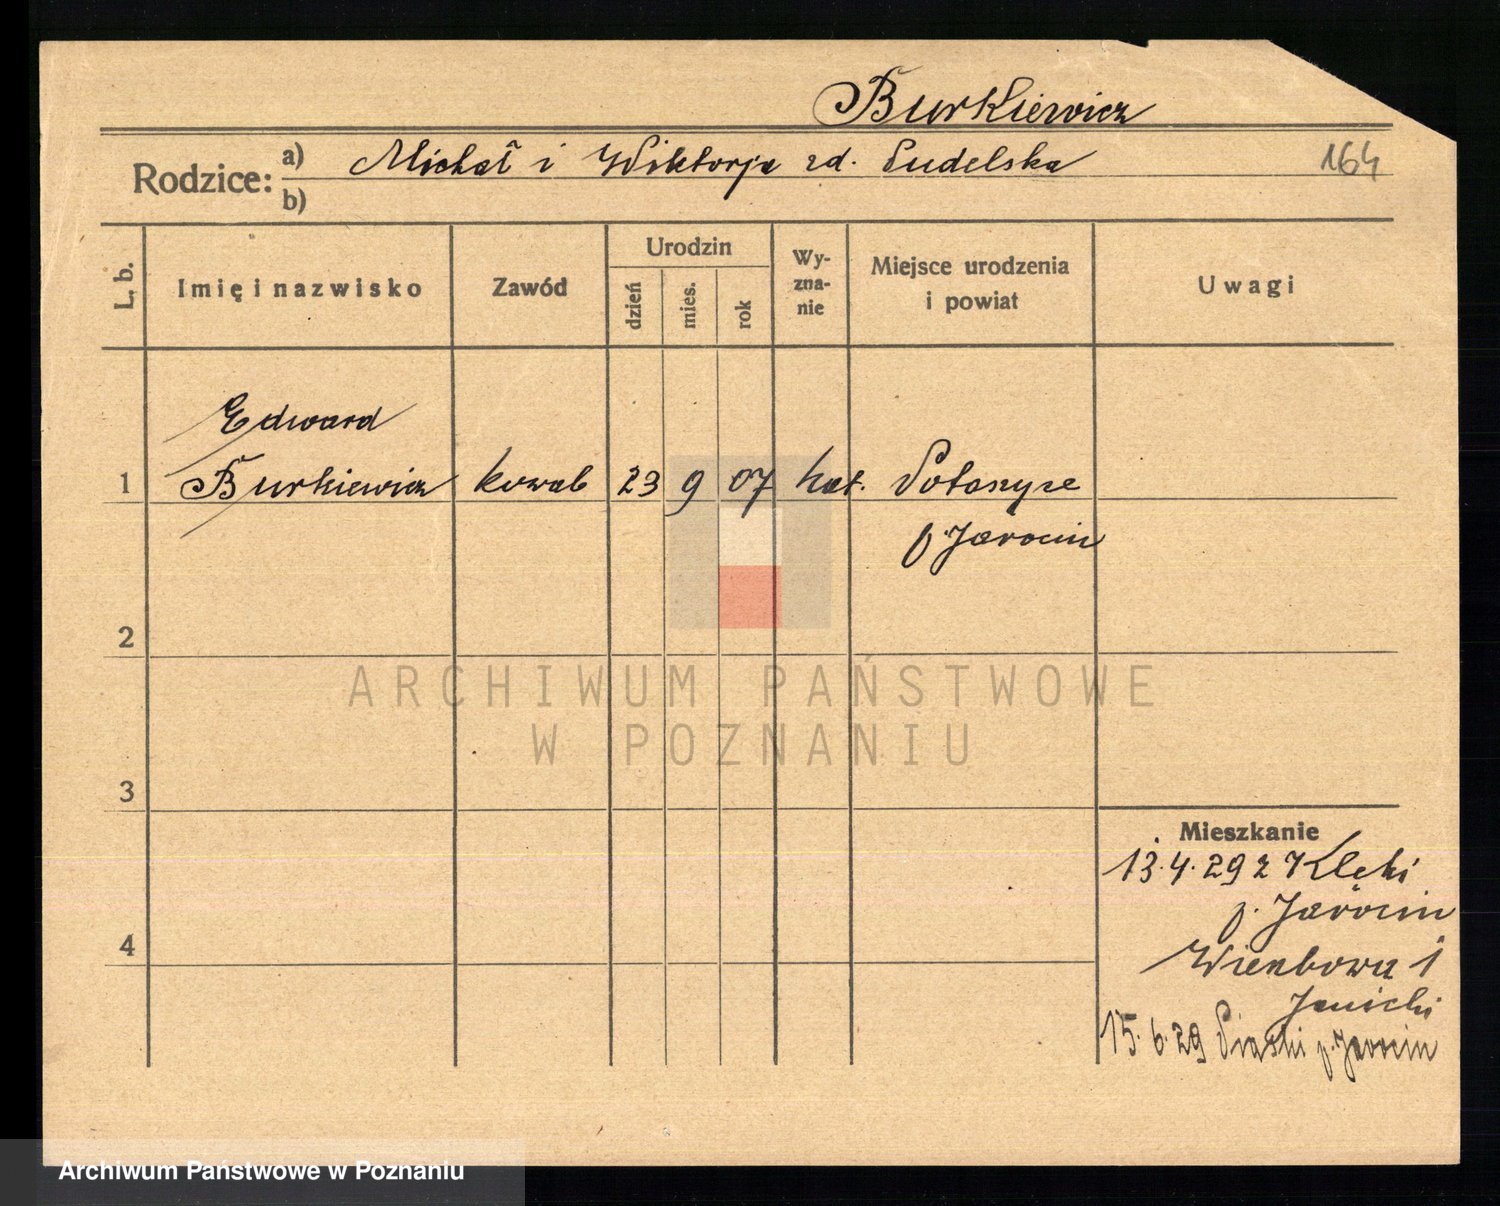 Burkiewicz
Rodzice: a) Michał i Wiktorja zd. Sudelska 164
b)
L. b. Imię i nazwisko Zawód Urodzin dzień mies. rok Wy-zna-nie Miejsce urodzenia i powiat Uwagi
Edward
1 Burkiewicz kowal 23 9 07 kat. Potarzyce
p. Jarocin
2
ARCHIWUM PAŃSTWOWE
W POZNANIU
3
Mieszkanie
13.4.29 z Klęki
p. Jarocin
4
1
Janicki
15.6.29 Piaski p. Jarocin
Archiwum Państwowe w Poznaniu